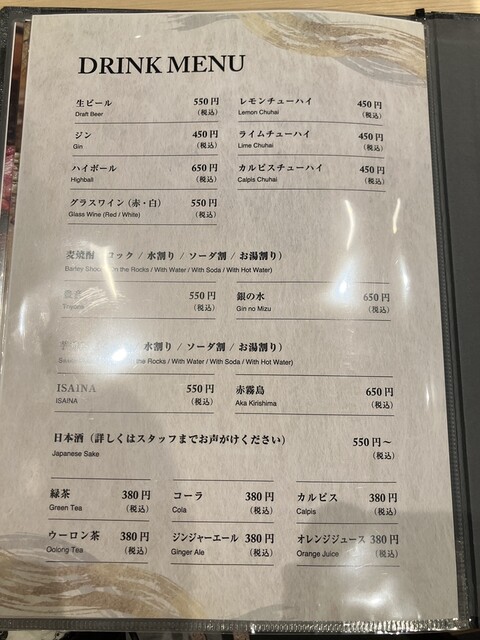 DRINK MENU
生ビール 550円 レモンチューハイ 450円
Draft Beer (税込) Lemon Chuhai (税込)
ジン 450円 ライムチューハイ 450円
Gin (税込) Lime Chuhai (税込)
ハイボール 650円 カルピスチューハイ 450円
Highball (税込) Calpis Chuhai (税込)
グラスワイン(赤・白) 550円
Glass Wine (Red / White) (税込)
麦焼酎 ロック / 水割り / ソーダ割 / お湯割り)
Barley On the Rocks / With Water / With Soda / With Hot Water)
550円 銀の水 650円
(税込) Gin no Mizu (税込)
水割り / ソーダ割 / お湯割り)
the Rocks / With Water / With Soda / With Hot Water)
ISAINA 550円 赤霧島 650円
ISAINA (税込) Aka Kirishima (税込)
日本酒(詳しくはスタッフまでお声がけください) 550円~
Japanese Sake (税込)
緑茶 380円 コーラ 380円 カルピス 380円
Green Tea (税込) Cola (税込) Calpis (税込)
ウーロン茶 380円 ジンジャーエール 380円 オレンジジュース 380円
Oolong Tea (税込) Ginger Ale (税込) Orange Juice (税込)